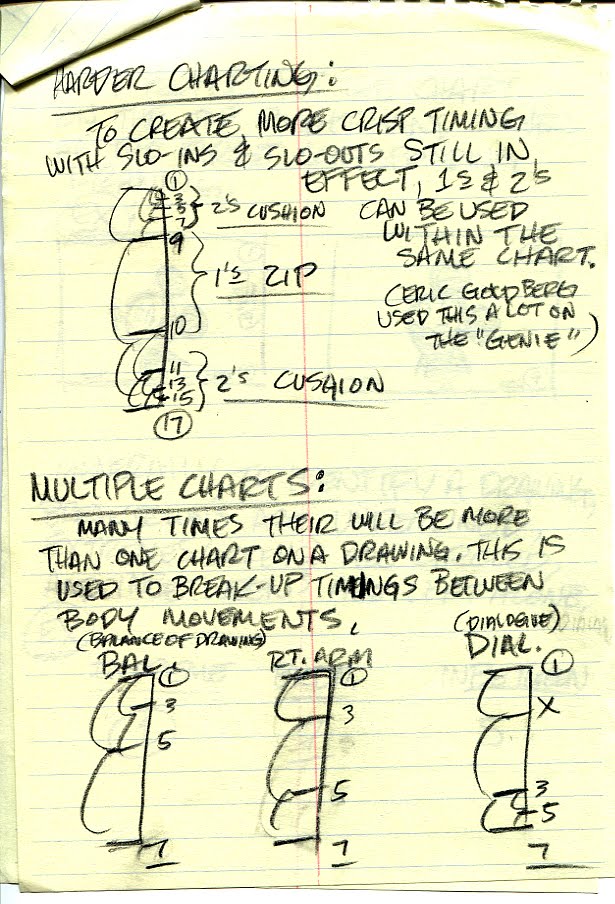 HARDER CHARTING:
TO CREATE, MORE CRISP TIMING
WITH SLO-INS & SLO-OUTS STILL IN
EFFECT, 1s & 2's
CAN BE USED
WITHIN THE
SAME CHART.
(ERIC GOLDBERG
USED THIS A LOT ON
THE "GENIE")
1
3
5
7
2's CUSHION
9
1's ZIP
10
11
13
15
2's CUSHION
17
MULTIPLE CHARTS:
MANY TIMES THEIR WILL BE MORE
THAN ONE CHART ON A DRAWING. THIS IS
USED TO BREAK-UP TIMINGS BETWEEN
BODY MOVEMENTS.
(BALANCE OF DRAWING)
BAL.
1
3
5
7
RT. ARM
1
3
5
7
(DIALOGUE)
DIAL.
1
X
3
5
7